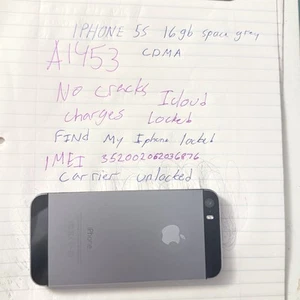 IPHONE 5S 16gb space gray
A1453 CDMA
No cracks Icloud
charges Locked
FIND My Iphone locked
IMEI 352002062036876
Carrier unlocked
iPhone